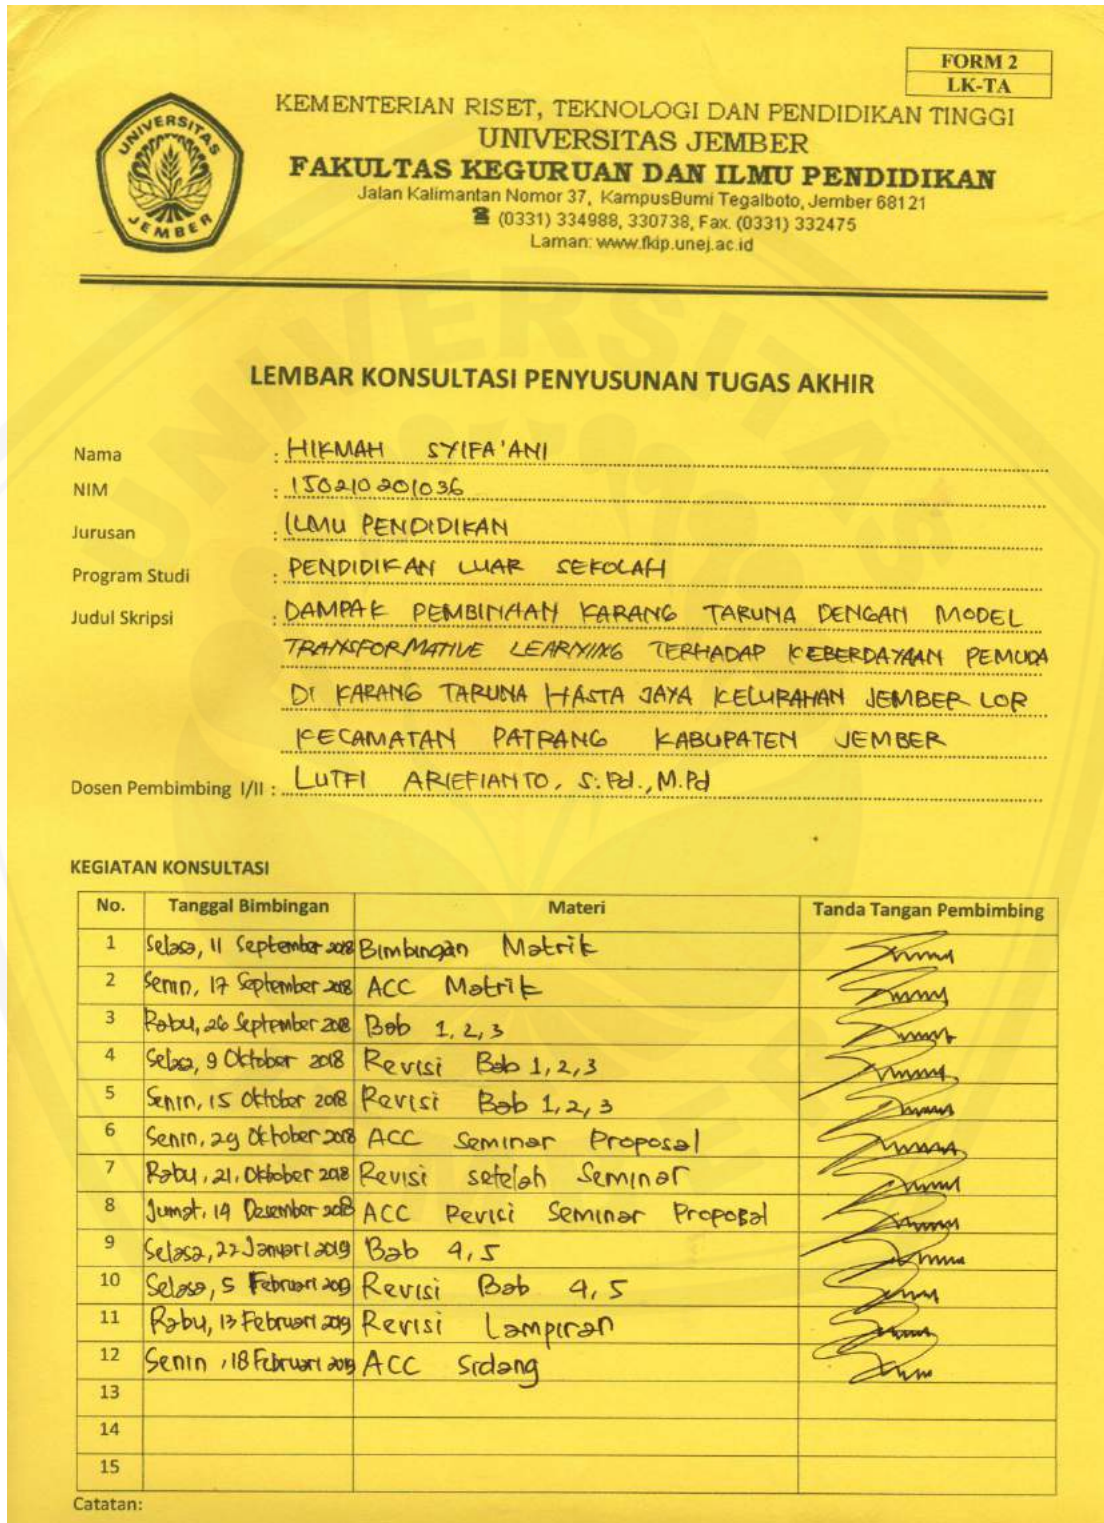 FORM 2
LK-TA
KEMENTERIAN RISET, TEKNOLOGI DAN PENDIDIKAN TINGGI
UNIVERSITAS JEMBER
FAKULTAS KEGURUAN DAN ILMU PENDIDIKAN
Jalan Kalimantan Nomor 37, KampusBumi Tegalboto, Jember 68121
☎ (0331) 334988, 330738, Fax. (0331) 332475
Laman: www.fkip.unej.ac.id
UNIVERSITAS JEMBER
LEMBAR KONSULTASI PENYUSUNAN TUGAS AKHIR
Nama : HIKMAH SYIFA'ANI
NIM : 150210201036
Jurusan : ILMU PENDIDIKAN
Program Studi : PENDIDIKAN LUAR SEKOLAH
Judul Skripsi : DAMPAK PEMBINAAN KARANG TARUNA DENGAN MODEL
TRANSFORMATIVE LEARNING TERHADAP KEBERDAYAAN PEMUDA
DI KARANG TARUNA HASTA JAYA KELURAHAN JEMBER LOR
KECAMATAN PATRANG KABUPATEN JEMBER
Dosen Pembimbing I/II : LUTFI ARIEFIANTO, S.Pd., M.Pd
KEGIATAN KONSULTASI
No. Tanggal Bimbingan Materi Tanda Tangan Pembimbing
1 Selasa, 11 September 2018 Bimbingan Matrik
2 Senin, 17 September 2018 ACC Matrik
3 Rabu, 26 September 2018 Bab 1, 2, 3
4 Selasa, 9 Oktober 2018 Revisi Bab 1, 2, 3
5 Senin, 15 Oktober 2018 Revisi Bab 1, 2, 3
6 Senin, 29 Oktober 2018 ACC Seminar Proposal
7 Rabu, 21, Oktober 2018 Revisi setelah Seminar
8 Jumat, 14 Desember 2018 ACC Revisi Seminar Proposal
9 Selasa, 22 Januari 2019 Bab 4, 5
10 Selasa, 5 Februari 2019 Revisi Bab 4, 5
11 Rabu, 13 Februari 2019 Revisi Lampiran
12 Senin, 18 Februari 2019 ACC Sidang
13
14
15
Catatan: